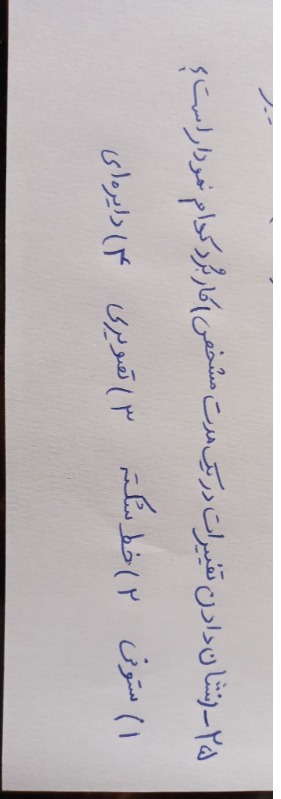 ۲۵- نشان دادن تغییرات در یک مدت مشخص، کاربُرد کدام نمودار است؟
۱) ستونی ۲) خط شکسته ۳) تصویری ۴) دایره‌ای